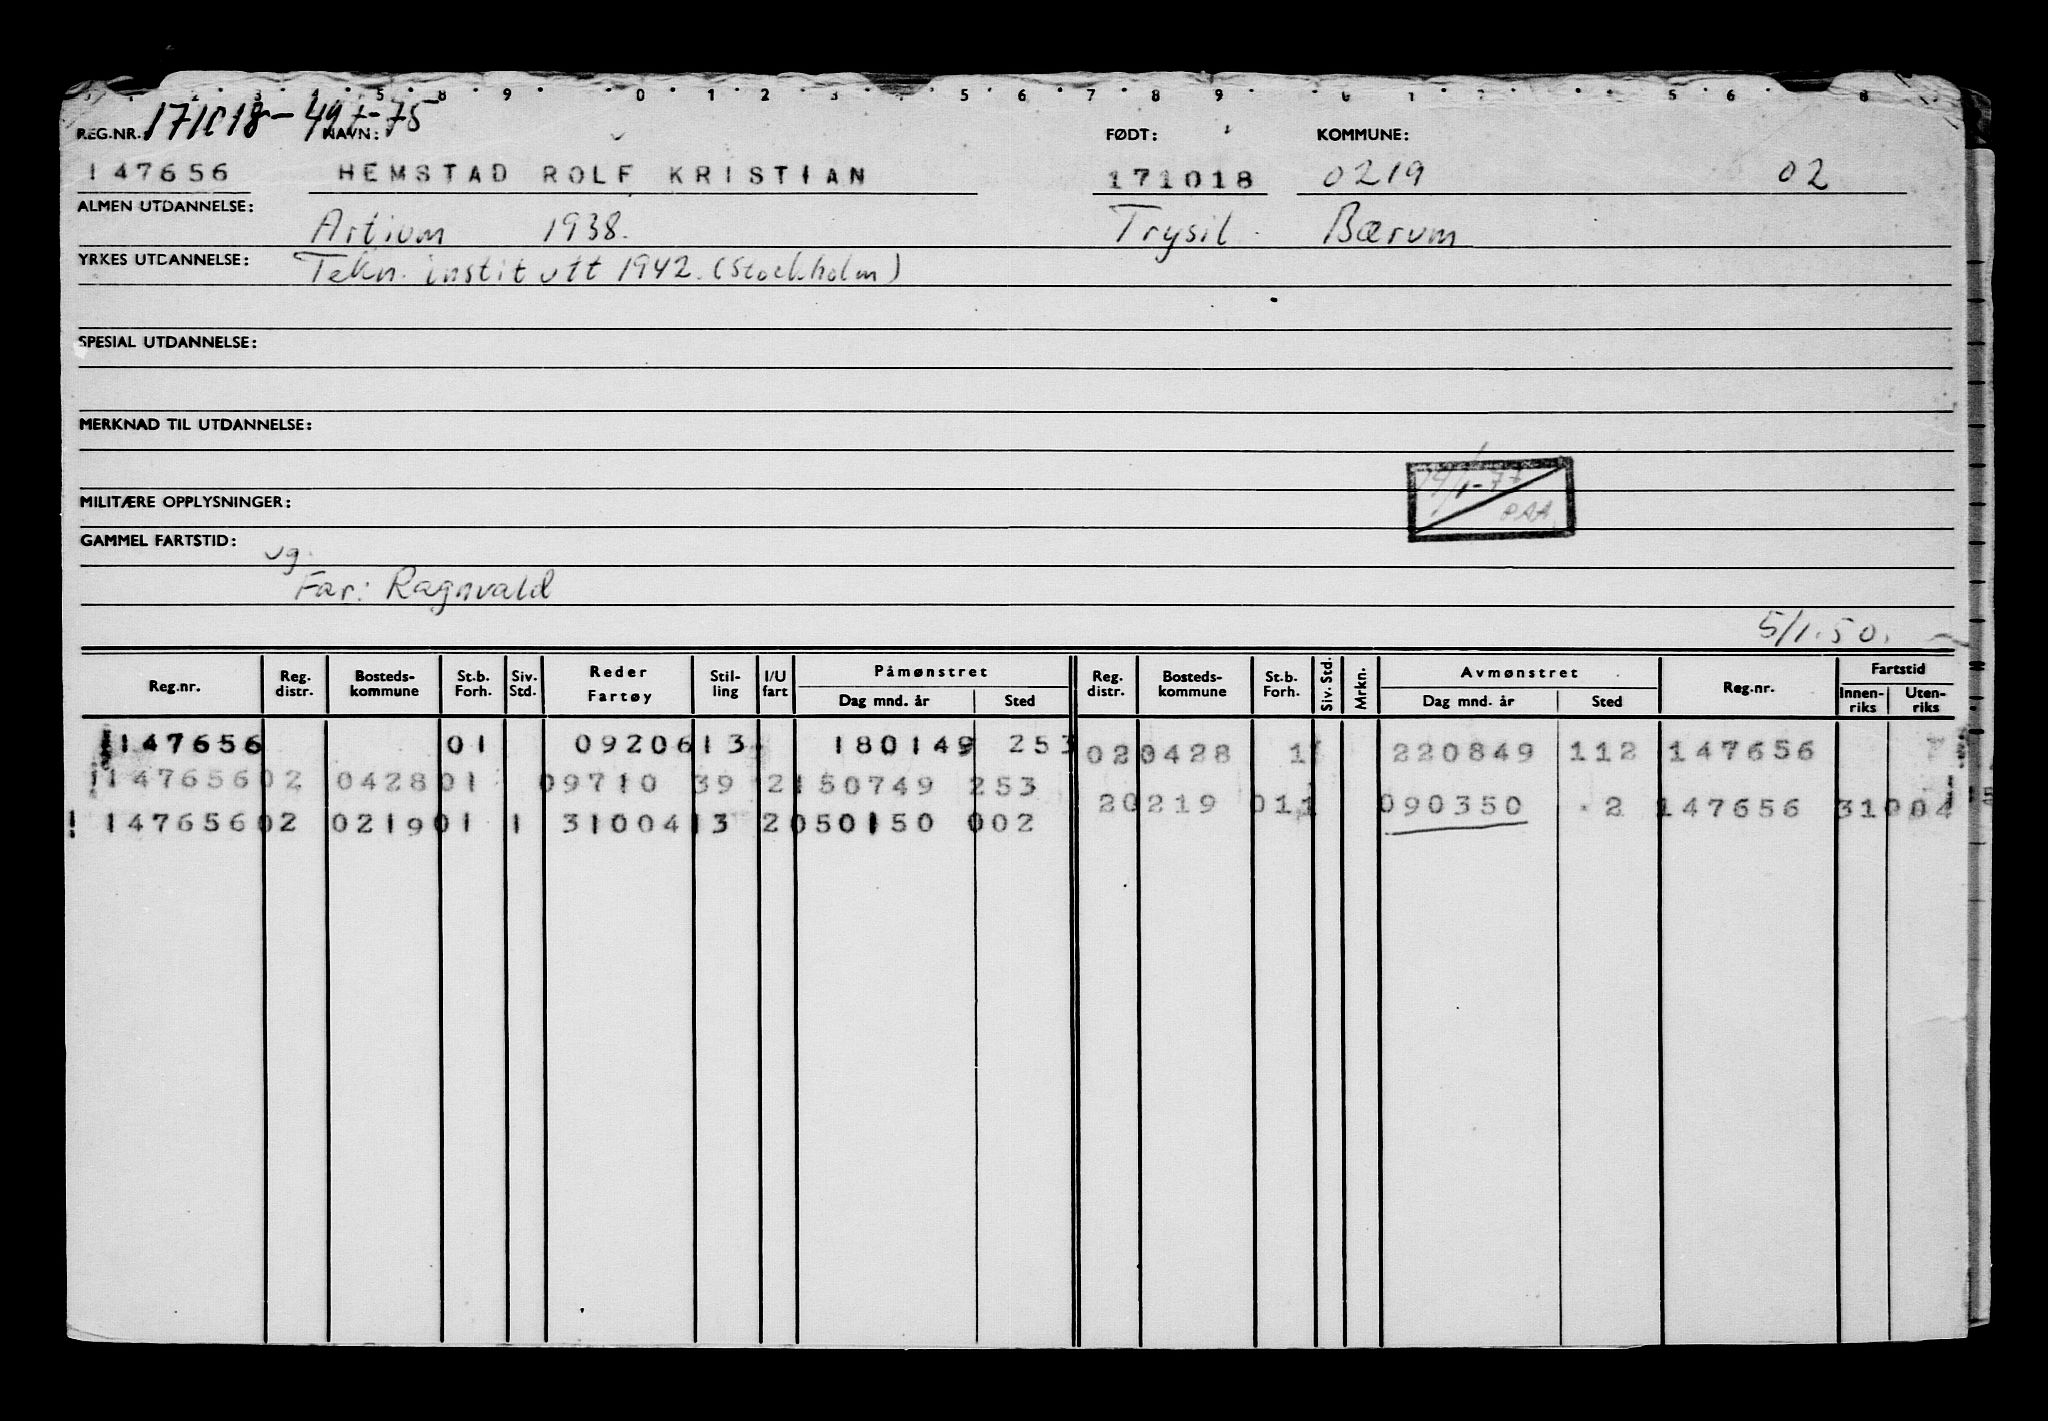 171018-497-75
REG.NR. NAVN: FØDT: KOMMUNE:
147656 HEMSTAD ROLF KRISTIAN 171018 0219 02
ALMEN UTDANNELSE: Artium 1938. Trysil Bærum
YRKES UTDANNELSE: Tekn. institutt 1942. (Stockholm)
SPESIAL UTDANNELSE:
MERKNAD TIL UTDANNELSE:
MILITÆRE OPPLYSNINGER:
PAA
GAMMEL FARTSTID:
ug.
Far: Ragnvald
5/1.50.
Reg.nr. Reg. distr. Bosteds-kommune St.b. Forh. Siv. Std. Reder Fartøy Stil-ling I/U fart Påmønstret Dag mnd. år Sted Reg. distr. Bosteds-kommune St.b. Forh. Siv. Std. Mrkn. Avmønstret Dag mnd. år Sted Reg.nr. Fartstid Innen-riks Uten-riks
147656 01 09206 13 180149 253 02 0428 1 220849 112 147656
147656 02 0428 01 09710 39 2 150749 253
2 0219 01 1 090350 2 147656 31004
147656 02 0219 01 1 31004 13 2 050150 002